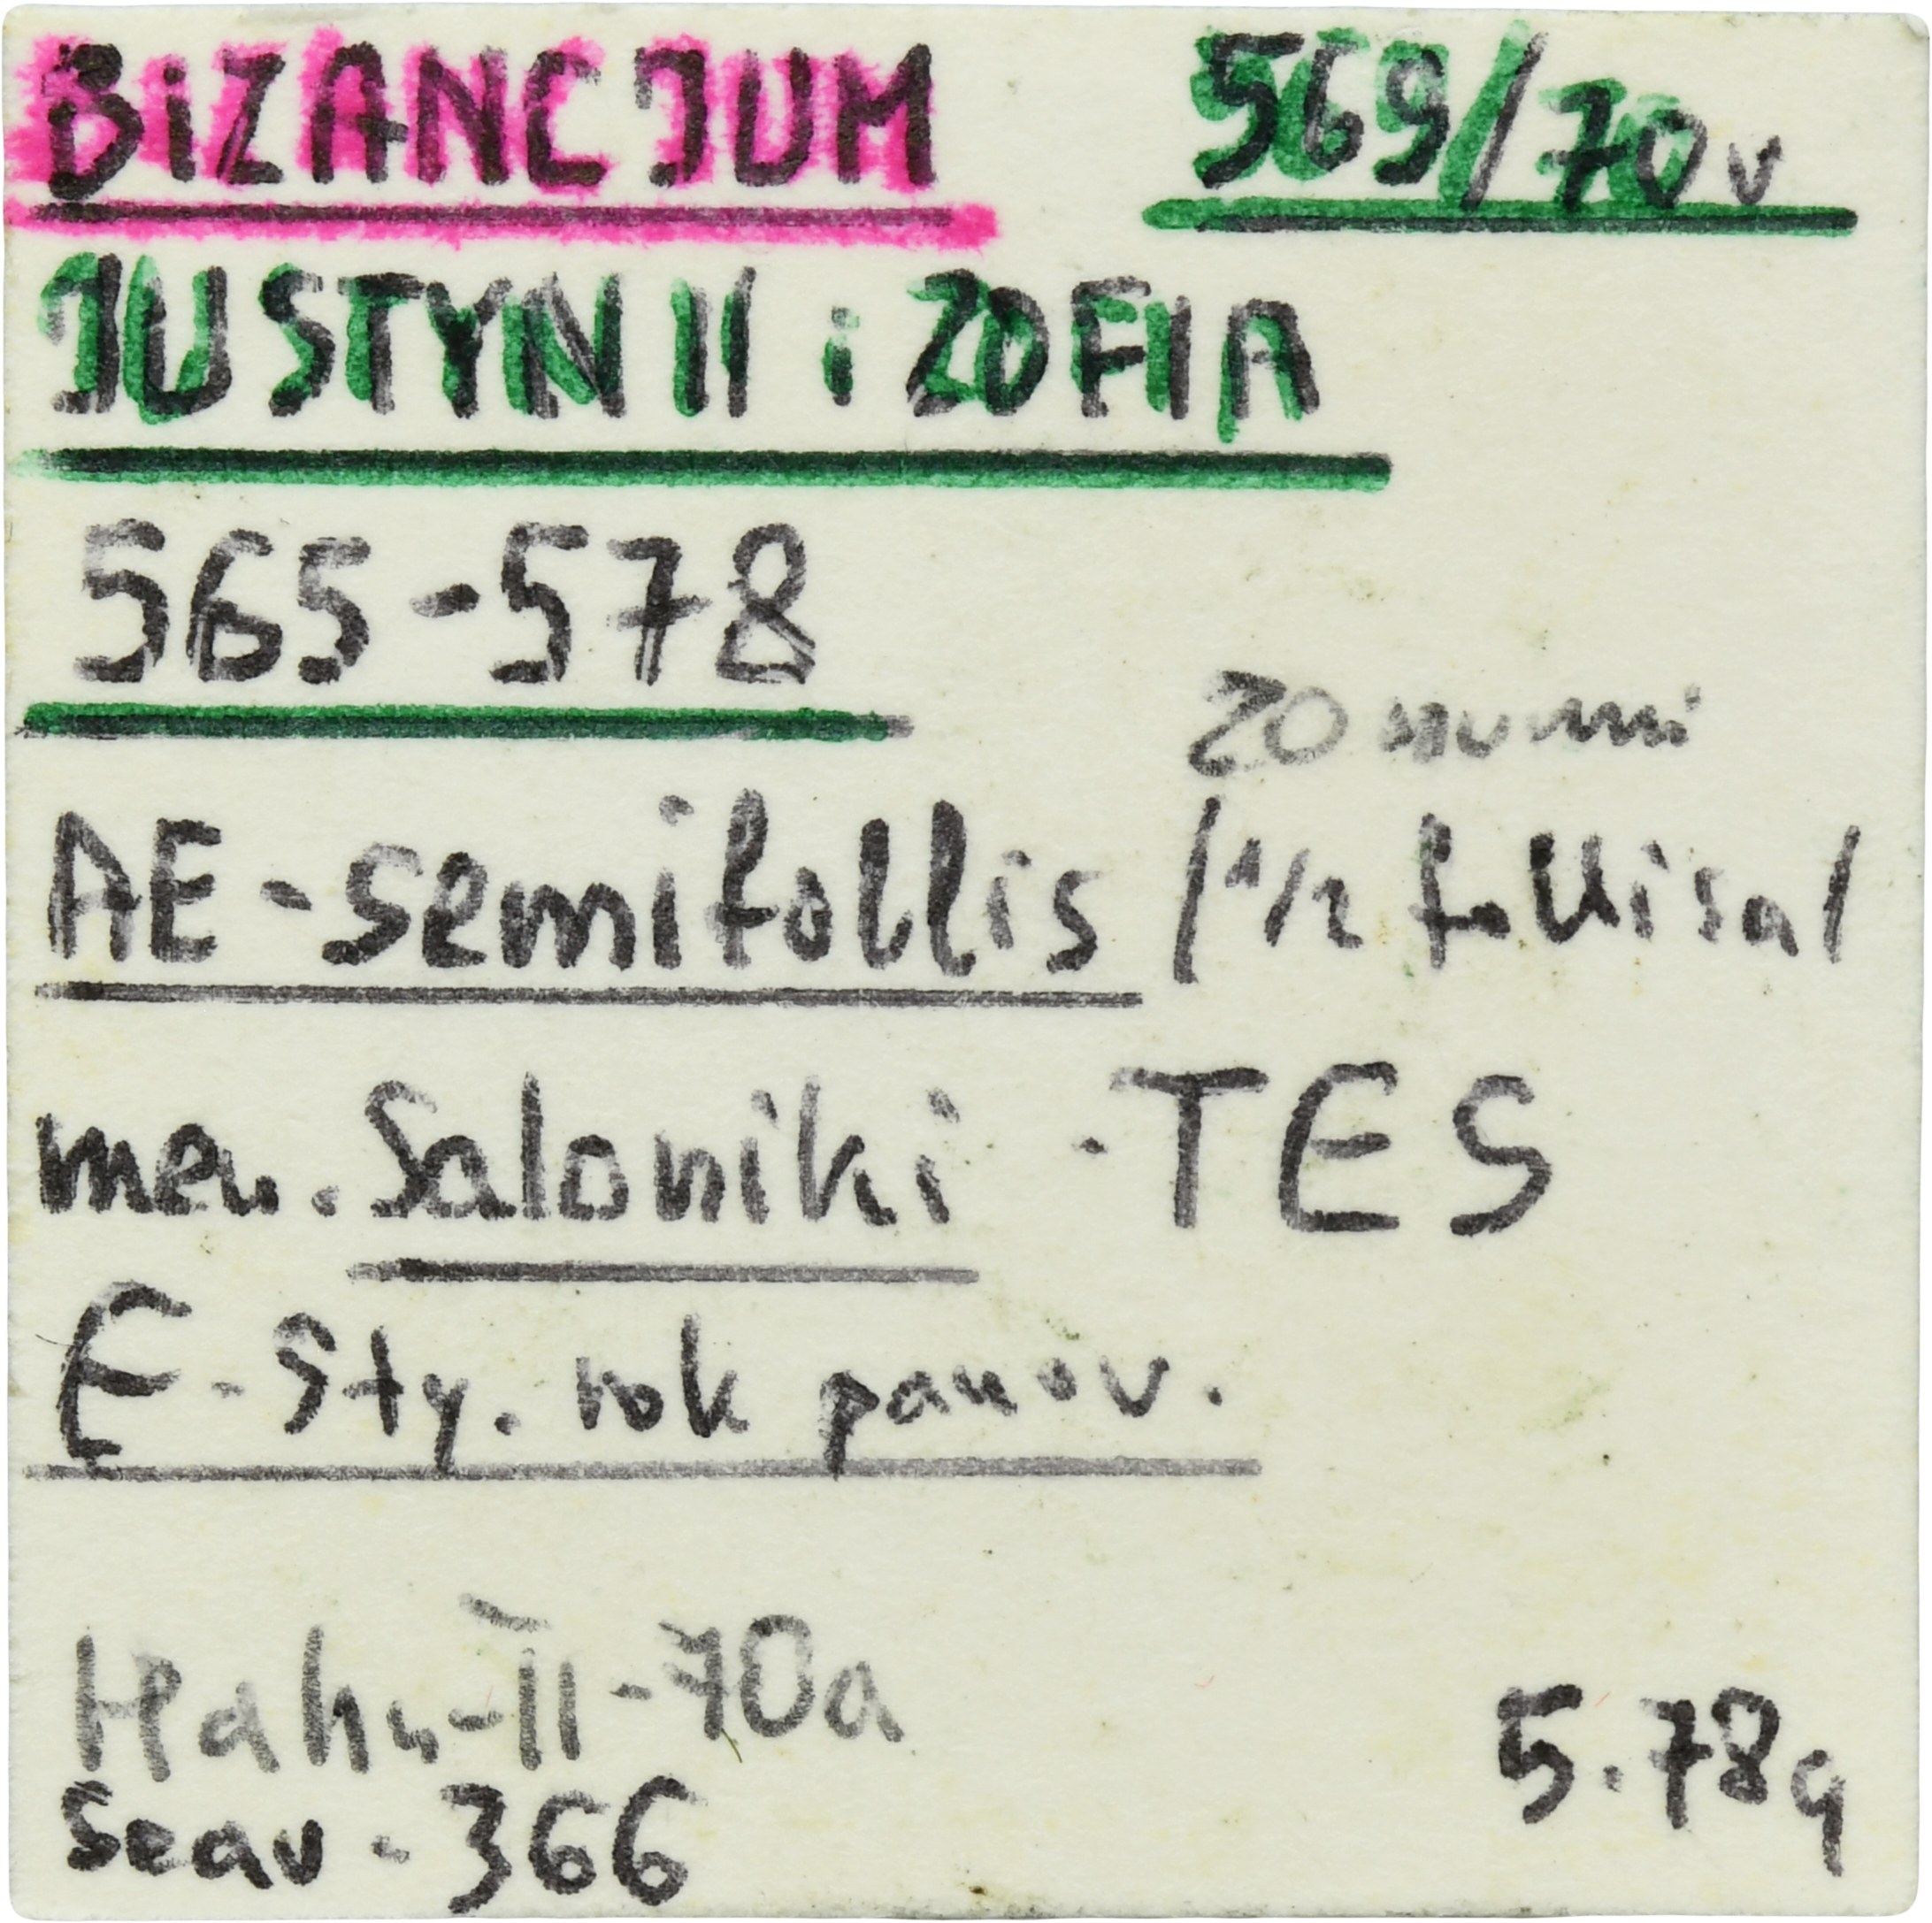 BiZANCJUM 569/70 r
JUSTYN II i ZOFIA
565-578
20 nummi
AE-semifollis /1/2 follisa/
men. Saloniki - TES
E - 5ty. rok panow.
Hahn-II-70a
5.78g
Sear - 366